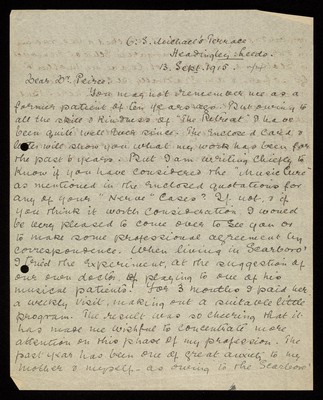 6. S. Michael's Terrace
Headingley, Leeds.
13. Sept. 1915.
Dear Dr. Peirce.
You may not remember me as a
former patient of ten years ago. But owing to
all the skill & kindness of "The Retreat" I have
been quite well ever since. The Enclosed Card &
will show you what my work has been for
the past 6 years. But I am writing chiefly to
know if you have considered the "Music Cure"
as mentioned in the Enclosed quotations for
any of your "Nerve" Cases? If not, & if
you think it worth consideration, I would
be very pleased to come over to see you or
to make some professional agreement by
correspondence. When living in Scarboro'
I tried the Experiment, at the suggestion of
our own doctor, of playing to one of his
musical patients. For 3 months I paid her
a weekly visit, making out a suitable little
program. The result was so cheering that it
has made me wishful to concentrate more
attention on this phase of my profession. The
past year has been one of great anxiety to my
mother & myself - as owing to the Scarboro'